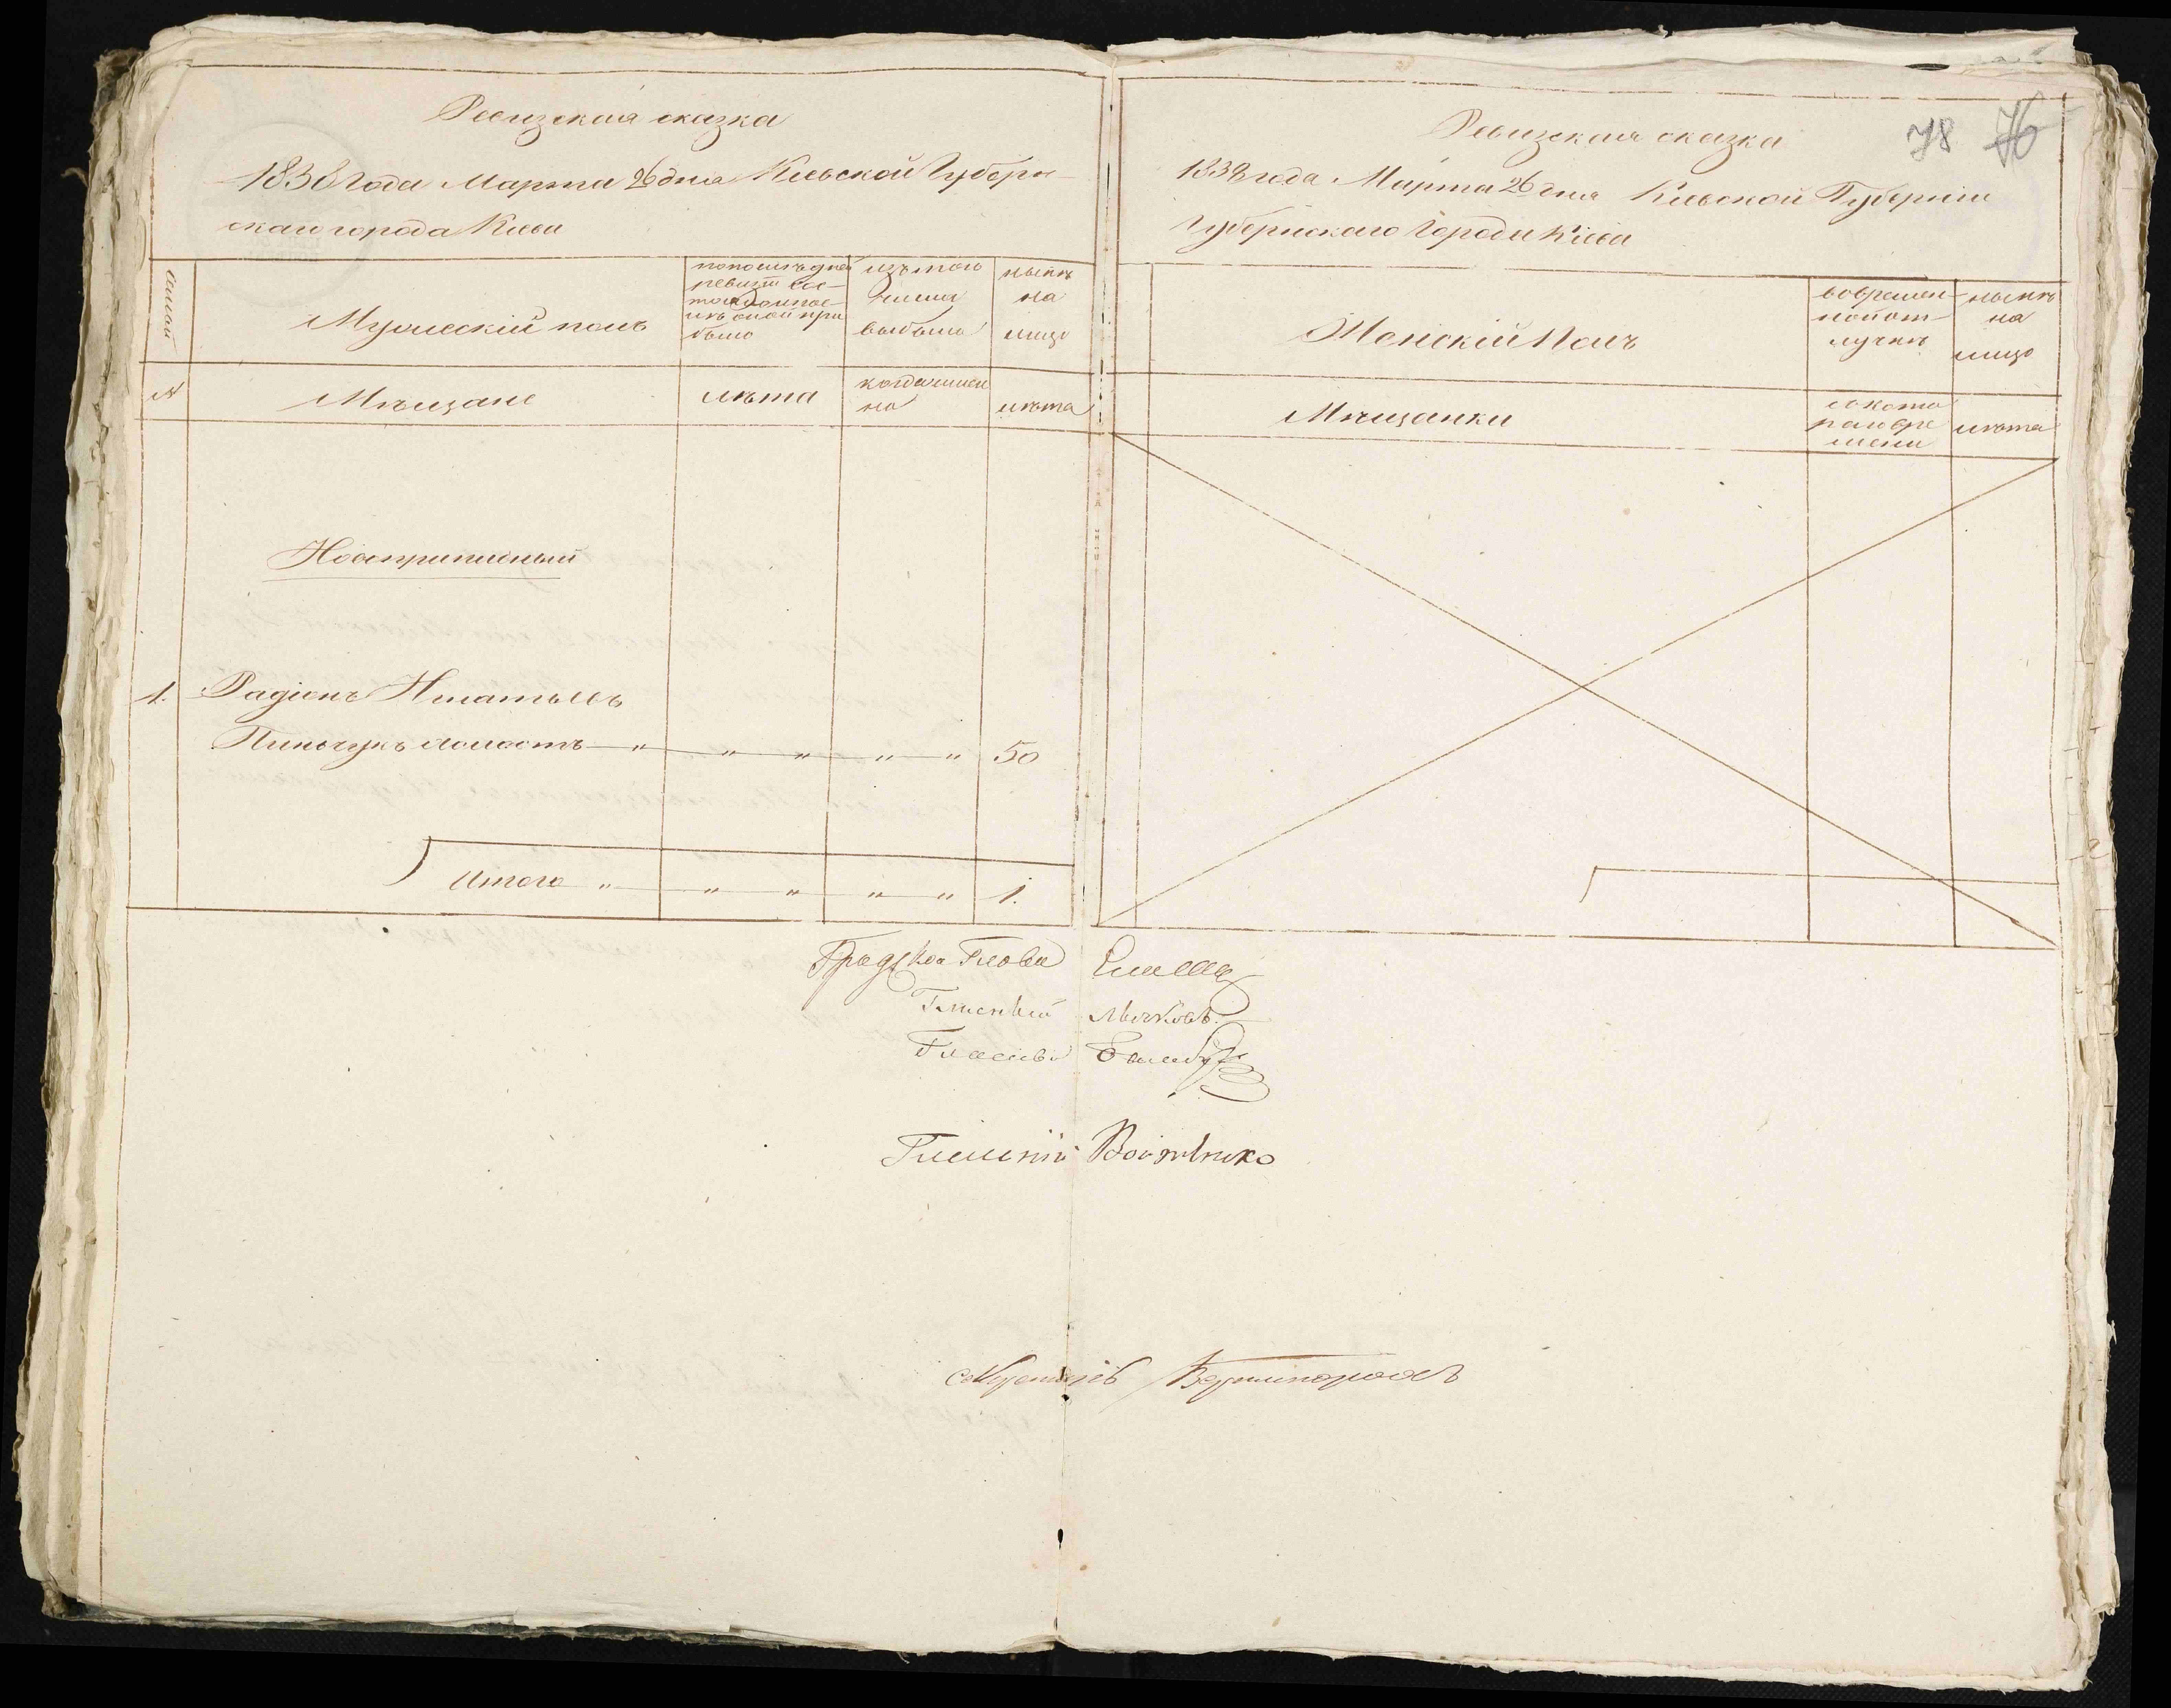 Ревизская сказка
1838 года Марта 26 дня Кіевской Губерн-
скаго города Кіева
Мужескій полъ
по последней
ревизіи сос-
тояло и после
оной при
было
изъ того
числа
выбыло
ныне
на
лицо
№
Мещане
лета
когда имен
но
лета
Новоприписный
1. Радіонъ Игнатьевъ
Пинчукъ холостъ — " — " — " — " — " 50
Итого " — " — " — " — " 1.
78 76
Ревизская сказка
1838 года Марта 26 дня Кіевской Губерніи
Губернскаго Города Кіева
Женскій Полъ
во времен-
ной от-
лучке
ныне
на
лицо
Мещанки
съ кото
раго вре
мени
лета
Градской Глова
Гласный Лычковъ
Гласный
Гласный Войтенко